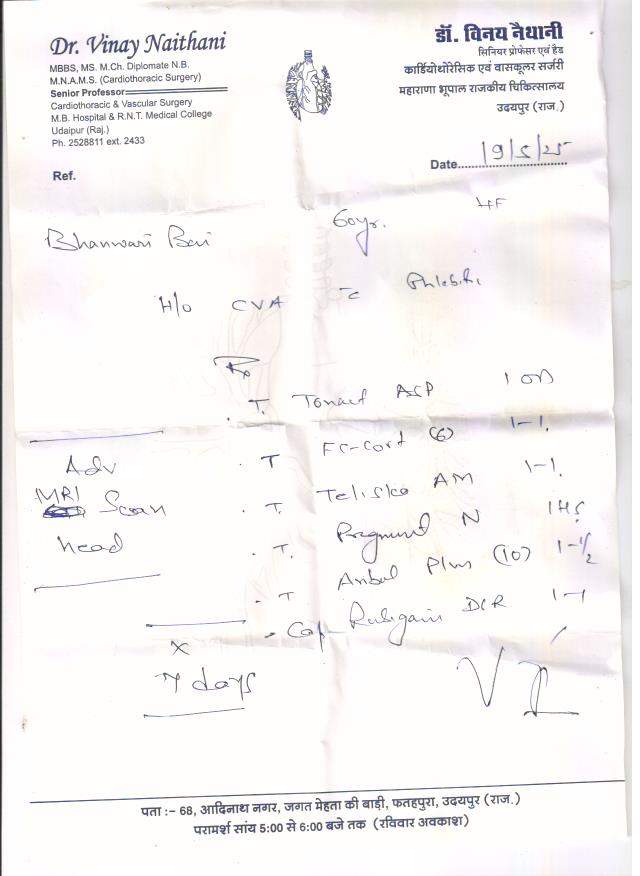 Dr. Vinay Naithani
MBBS, MS. M.Ch. Diplomate N.B.
M.N.A.M.S. (Cardiothoracic Surgery)
Senior Professor
Cardiothoracic & Vascular Surgery
M.B. Hospital & R.N.T. Medical College
Udaipur (Raj.)
Ph. 2528811 ext. 2433
डॉ. विनय नैथानी
सिनियर प्रोफेसर एवं हैड
कार्डियोथोरेसिक एवं वासकूलर सर्जरी
महाराणा भूपाल राजकीय चिकित्सालय
उदयपुर (राज.)
Date 19/5/25
Ref.
Bhanwari Bai 60yr.
H/o CVA
Rx
T. ASP 1 OD
T (6) 1-1.
T. AM 1-1.
T. N 1HS
T Plus (10) 1-1/2
Cap- 1-1
Adv
MRI Scan
head
x
7 days
पता :– 68, आदिनाथ नगर, जगत मेहता की बाड़ी, फतहपुरा, उदयपुर (राज.)
परामर्श सांय 5:00 से 6:00 बजे तक (रविवार अवकाश)